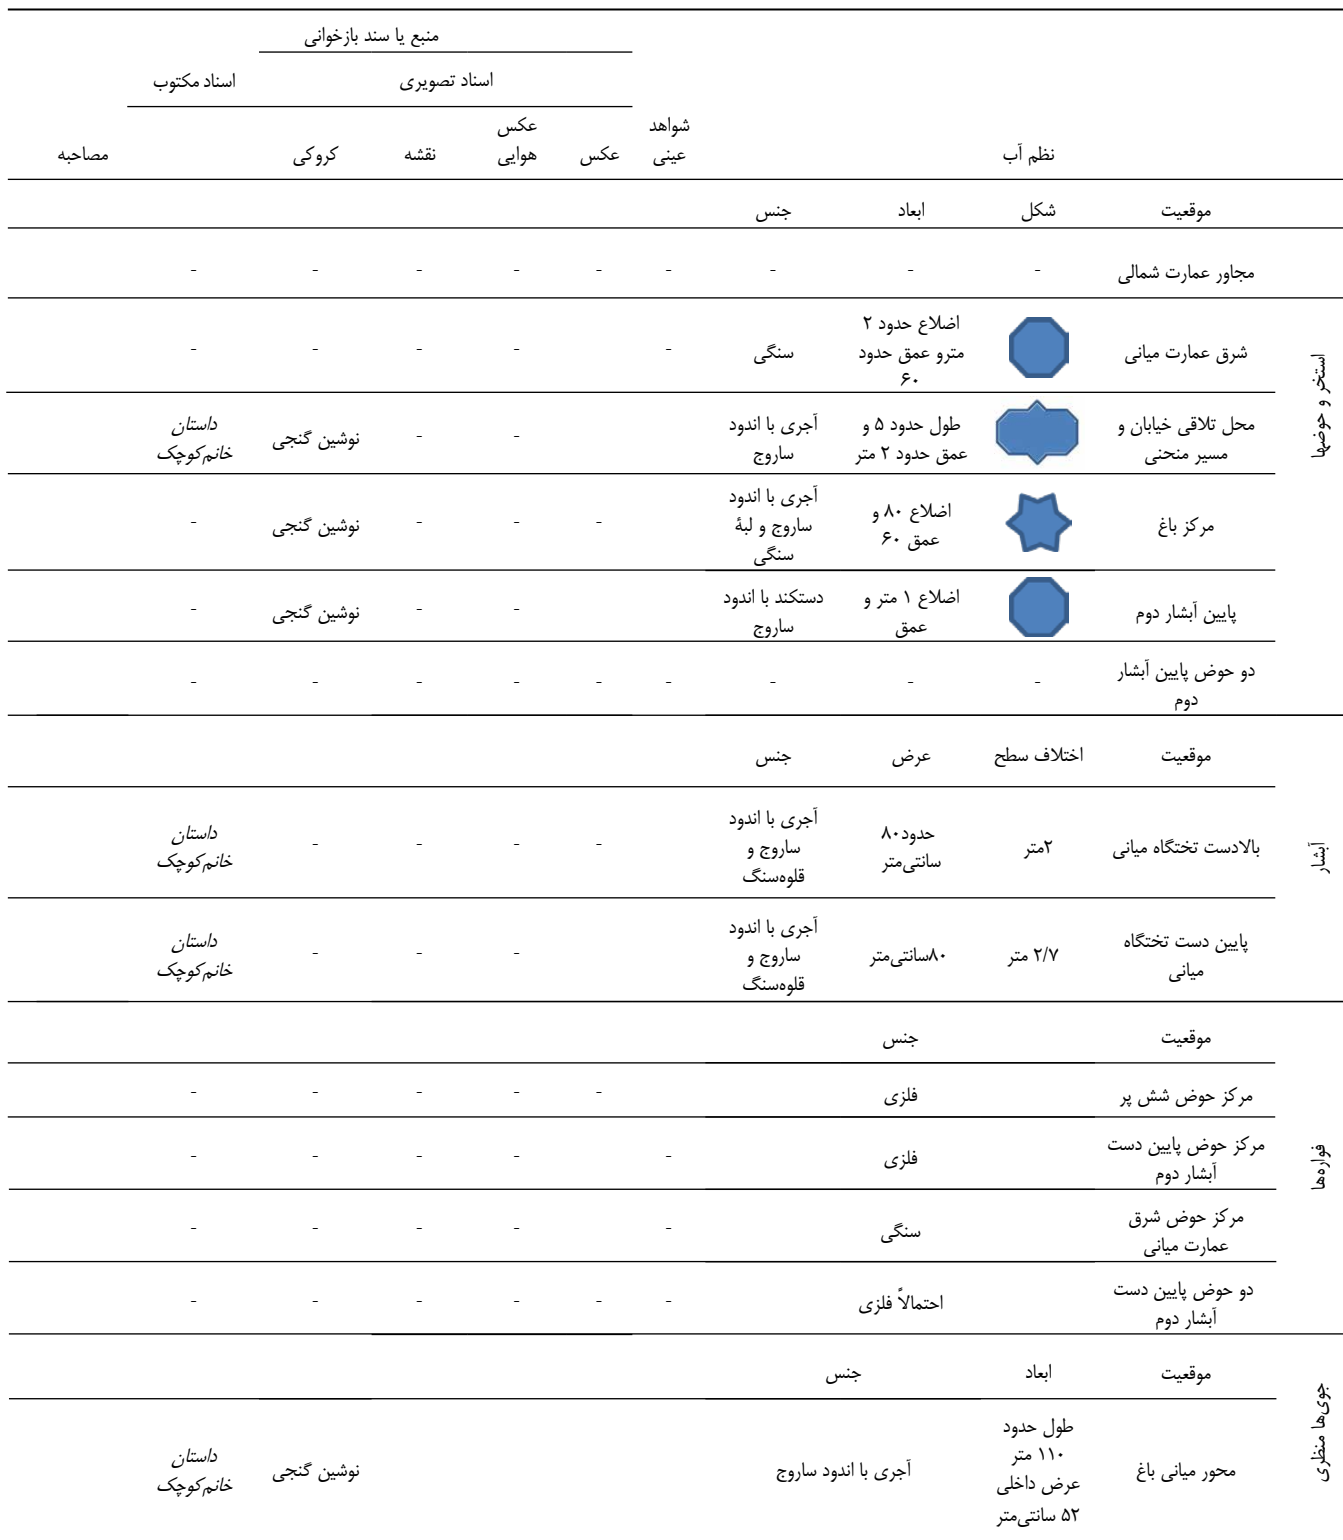 منبع یا سند بازخوانی
اسناد تصویری
اسناد مکتوب
نظم آب
شواهد
عینی
عکس
عکس
هوایی
نقشه
کروکی
مصاحبه
موقعیت
شکل
ابعاد
جنس
استخر و حوضها
مجاور عمارت شمالی
-
-
-
-
-
-
-
-
-
شرق عمارت میانی
اضلاع حدود ۲
مترو عمق حدود
۶۰
سنگی
-
-
-
-
-
محل تلاقی خیابان و
مسیر منحنی
طول حدود ۵ و
عمق حدود ۲ متر
آجری با اندود
ساروج
-
-
نوشین گنجی
داستان
خانم‌کوچک
مرکز باغ
اضلاع ۸۰ و
عمق ۶۰
آجری با اندود
ساروج و لبهٔ
سنگی
-
-
-
نوشین گنجی
-
پایین آبشار دوم
اضلاع ۱ متر و
عمق
دستکند با اندود
ساروج
-
-
نوشین گنجی
-
دو حوض پایین آبشار
دوم
-
-
-
-
-
-
-
-
-
آبشار
موقعیت
اختلاف سطح
عرض
جنس
بالادست تختگاه میانی
۲متر
حدود۸۰
سانتی‌متر
آجری با اندود
ساروج و
قلوه‌سنگ
-
-
-
-
داستان
خانم‌کوچک
پایین دست تختگاه
میانی
۲/۷ متر
۸۰سانتی‌متر
آجری با اندود
ساروج و
قلوه‌سنگ
-
-
-
داستان
خانم‌کوچک
فواره‌ها
موقعیت
جنس
مرکز حوض شش پر
فلزی
-
-
-
-
-
مرکز حوض پایین دست
آبشار دوم
فلزی
-
-
-
-
-
مرکز حوض شرق
عمارت میانی
سنگی
-
-
-
-
-
دو حوض پایین دست
آبشار دوم
احتمالاً فلزی
-
-
-
-
-
-
جوی‌ها منظری
موقعیت
ابعاد
جنس
محور میانی باغ
طول حدود
۱۱۰ متر
عرض داخلی
۵۲ سانتی‌متر
آجری با اندود ساروج
نوشین گنجی
داستان
خانم‌کوچک